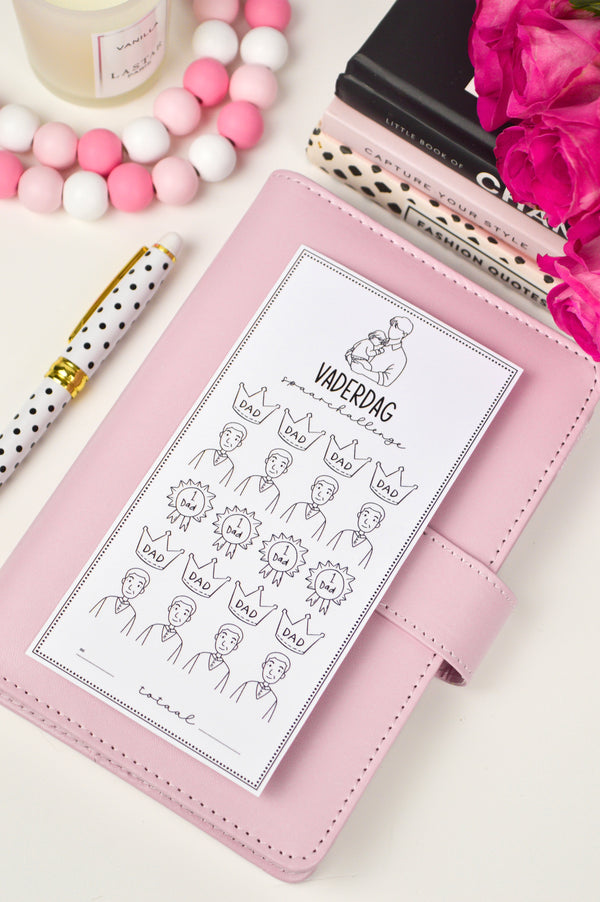 VANILLA
LASTAR
LITTLE BOOK OF
CHAN
CAPTURE YOUR STYLE
FASHION QUOTES
VADERDAG
spaarchallenge
DAD DAD DAD DAD
1 Dad 1 Dad 1 Dad 1 Dad
DAD DAD DAD DAD
totaal